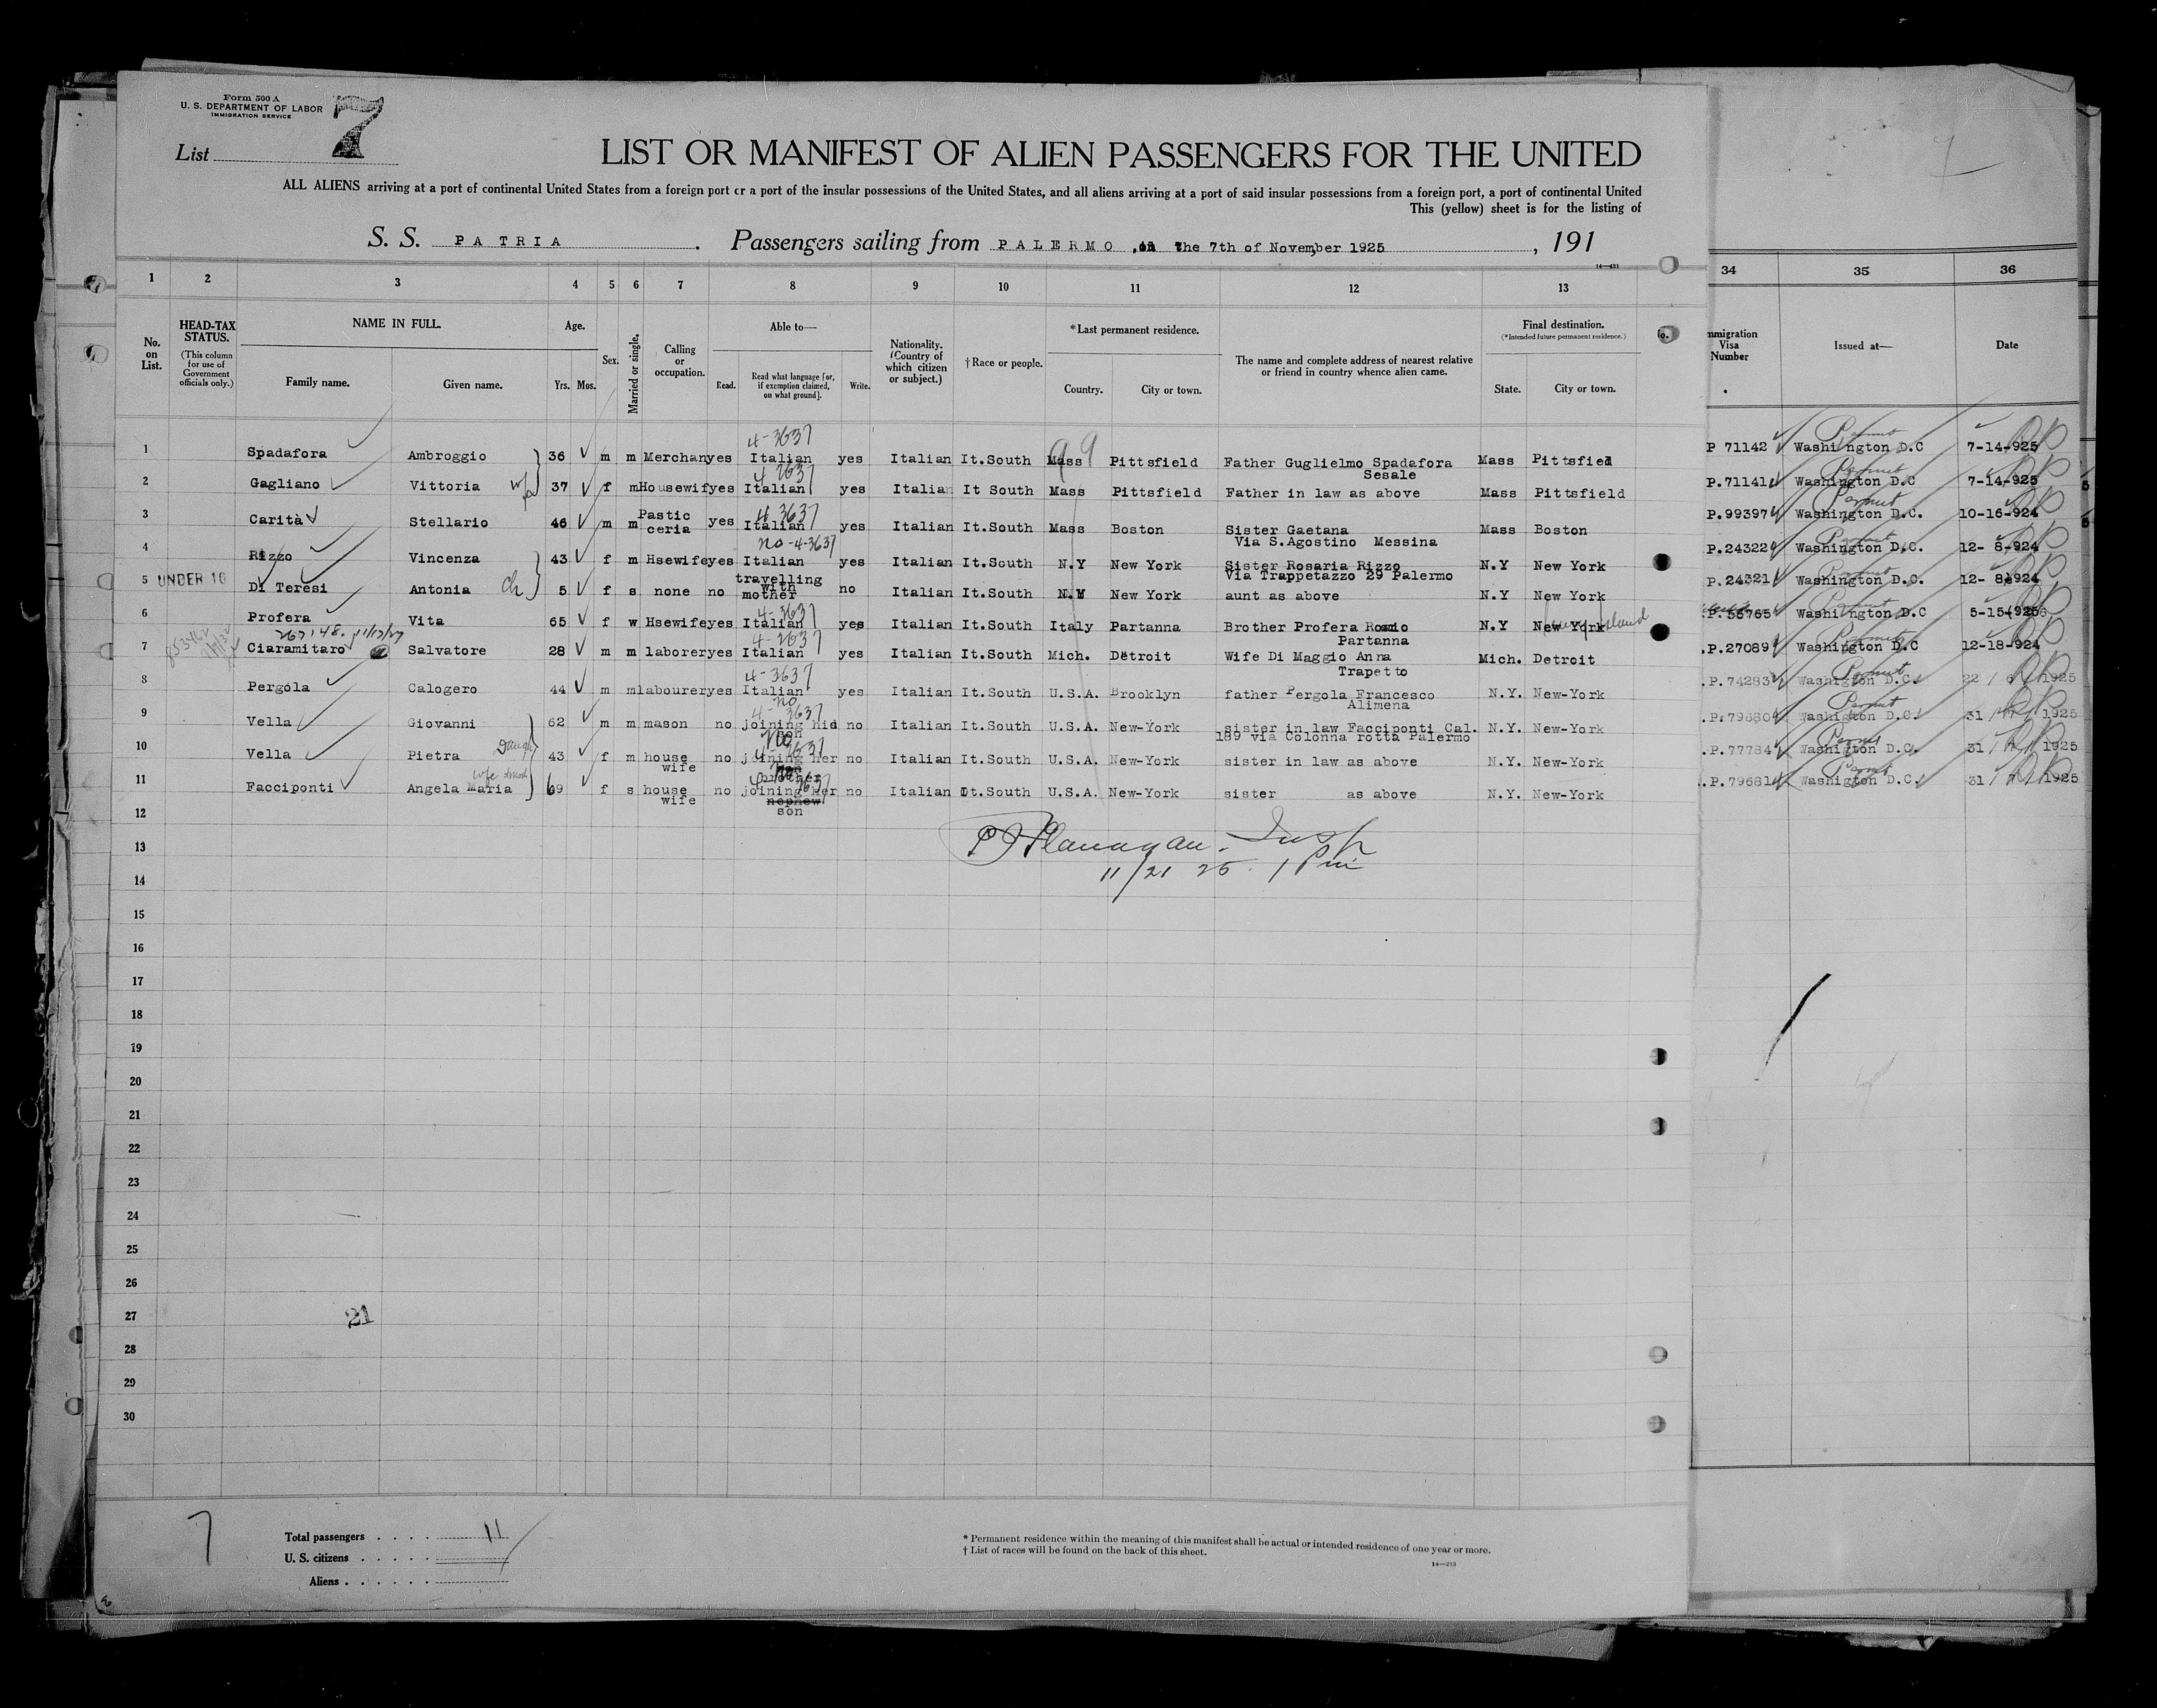 Form 500 A
U. S. DEPARTMENT OF LABOR
IMMIGRATION SERVICE
List 7
LIST OR MANIFEST OF ALIEN PASSENGERS FOR THE UNITED
ALL ALIENS arriving at a port of continental United States from a foreign port or a port of the insular possessions of the United States, and all aliens arriving at a port of said insular possessions from a foreign port, a port of continental United
This (yellow) sheet is for the listing of
S. S. PATRIA . Passengers sailing from PALERMO , the 7th of November 1925 , 191
14—431
1 2 3 4 5 6 7 8 9 10 11 12 13 34 35 36
No. on List. HEAD-TAX STATUS. (This column for use of Government officials only.) NAME IN FULL. Family name. Given name. Age. Yrs. Mos. Sex. Married or single. Calling or occupation. Able to— Read. Read what language [or, if exemption claimed, on what ground]. Write. Nationality. (Country of which citizen or subject.) †Race or people. *Last permanent residence. Country. City or town. The name and complete address of nearest relative or friend in country whence alien came. Final destination. (*Intended future permanent residence.) State. City or town. mmigration Visa Number Issued at— Date
4-3637
1 Spadafora Ambroggio 36 m m Merchan yes Italian yes Italian It.South Mass Pittsfield Father Guglielmo Spadafora Mass Pittsfied P 71142 Permit Washington D.C 7-14-925
Sesale
2 Gagliano Vittoria wf 37 f m Housewif yes Italian yes Italian It South Mass Pittsfield Father in law as above Mass Pittsfield P.71141 Permit Washington D.C 7-14-925
4 3637
3 Carità Stellario 46 m m Pastic ceria yes Italian yes Italian It.South Mass Boston Sister Gaetana Mass Boston P.99397 Permit Washington D.C. 10-16-924
Via S.Agostino Messina
no-4-3637
4 Rizzo Vincenza 43 f m Hsewife yes Italian yes Italian It.South N.Y New York Sister Rosaria Rizzo N.Y New York P.24322 Washington D.C. 12- 8-924
Via Trappetazzo 29 Palermo
5 UNDER 16 Di Teresi Antonia Ch 5 f s none no travelling with mother no Italian It.South N.Y New York aunt as above N.Y New York P.24321 Washington D.C. 12- 8-924
4-3637
6 Profera Vita 65 f w Hsewife yes Italian yes Italian It.South Italy Partanna Brother Profera N.Y New York P.55765 Washington D.C 5-15-925
Partanna
267148. 11/17/27
7 Ciaramitaro Salvatore 28 m m laborer yes Italian yes Italian It.South Mich. Detroit Wife Di Maggio Anna Mich. Detroit .P.27089 Permit Washington D.C 12-18-924
Trapetto
4-3637
8 Pergola Calogero 44 m m labourer yes Italian yes Italian It.South U.S.A. Brooklyn father Pergola Francesco N.Y. New-York .P.74283 Permit Washington D.C. 22 / 1925
Alimena
no
4-3637
9 Vella Giovanni 62 m m mason no joining his son no Italian It.South U.S.A. New-York sister in law Facciponti Cal. N.Y. New-York .P.79680 Permit Washington D.C. 31 / 7 / 1925
189 via Colonna rotta Palermo
10 Vella Pietra Daugh 43 f m house wife no joining her no Italian It.South U.S.A. New-York sister in law as above N.Y. New-York .P.77784 Permit Washington D.C. 31 / 7 / 1925
11 Facciponti Angela Maria wife 69 f s house wife no joining her nephew son no Italian It.South U.S.A. New-York sister as above N.Y. New-York .P.79681 Permit Washington D.C. 31 / 7 / 1925
12
13 P J Flanagan. Insp
14 11/21 25. 1 Pm
15
16
17
18
19
20
21
22
23
24
25
26
27 21
28
29
30
7
Total passengers . . . . 11
U. S. citizens . . . . .
Aliens . . . . . .
* Permanent residence within the meaning of this manifest shall be actual or intended residence of one year or more.
† List of races will be found on the back of this sheet.
14—213